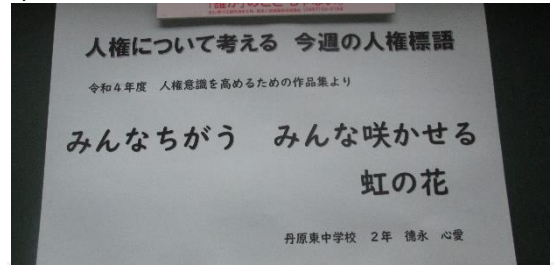 人権について考える 今週の人権標語
令和4年度 人権意識を高めるための作品集より
みんなちがう みんな咲かせる
虹の花
丹原東中学校 2年 徳永 心愛